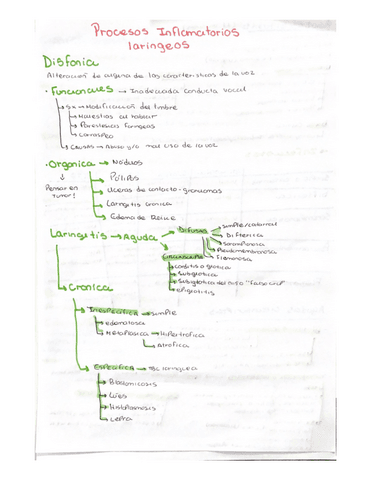 Procesos Inflamatorios
laringeos
Disfonia
Alteración de alguna de las características de la voz
· Funcionales → Inadecuada conducta vocal
→ Sx → Modificación del timbre
→ Molestias al hablar
→ Parestesias faringeas
→ Carraspeo
→ Causas → Abuso y/o mal uso de la voz
· Organica → Nódulos
↓
Pensar en
tumor!
→ Pólipos
→ Ulceras de contacto - granulomas
→ Laringitis cronica
→ Edema de Reinke
Laringitis → Aguda → Difusas → simple/catarral
→ Difterica
→ Sarampionosa
→ Pseudomembranosa
→ Flemonosa
→ Circunscrita
→ Subglotica
→ Subglotica del niño "falso crup"
→ epiglotitis
→ Cronica
→ Inespecifica → simple
→ edematosa
→ Metaplasica → Hipertrofica
→ Atrofica
→ Especifica → TBC laringea
→ Blastomicosis
→ Lúes
→ Histoplasmosis
→ Lepra